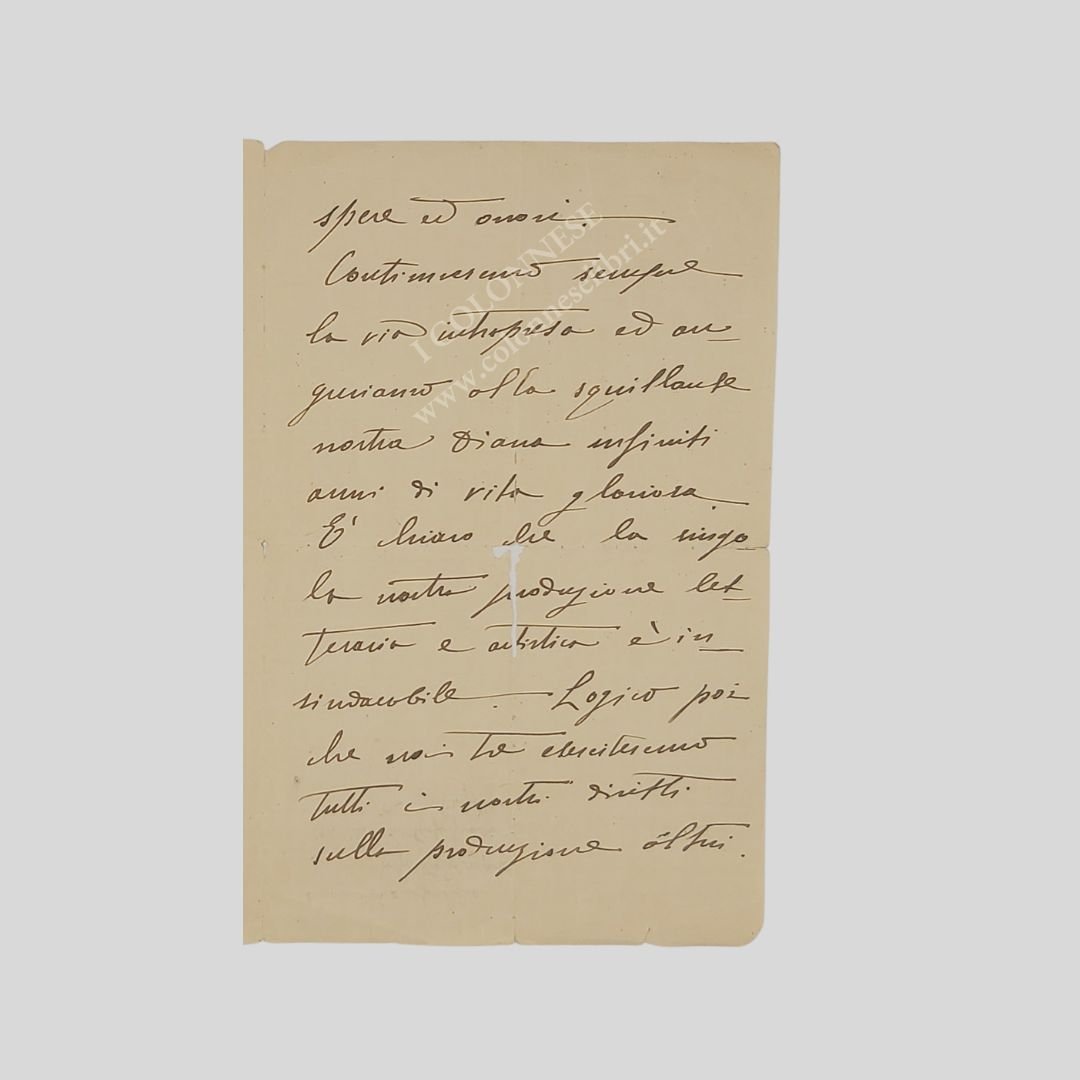 spese ed onori.
Continueremo sempre
la via intrapresa ed au-
guriamo alla squillante
nostra Diana infiniti
anni di vita gloriosa
E' chiaro che la singo
la nostra produzione let-
teraria e artistica è in-
sindacabile. Logico poi
che noi tre eserciteremo
tutti i nostri diritti
sulla produzione altrui.
I COLONNESE
www.colonneselibri.it